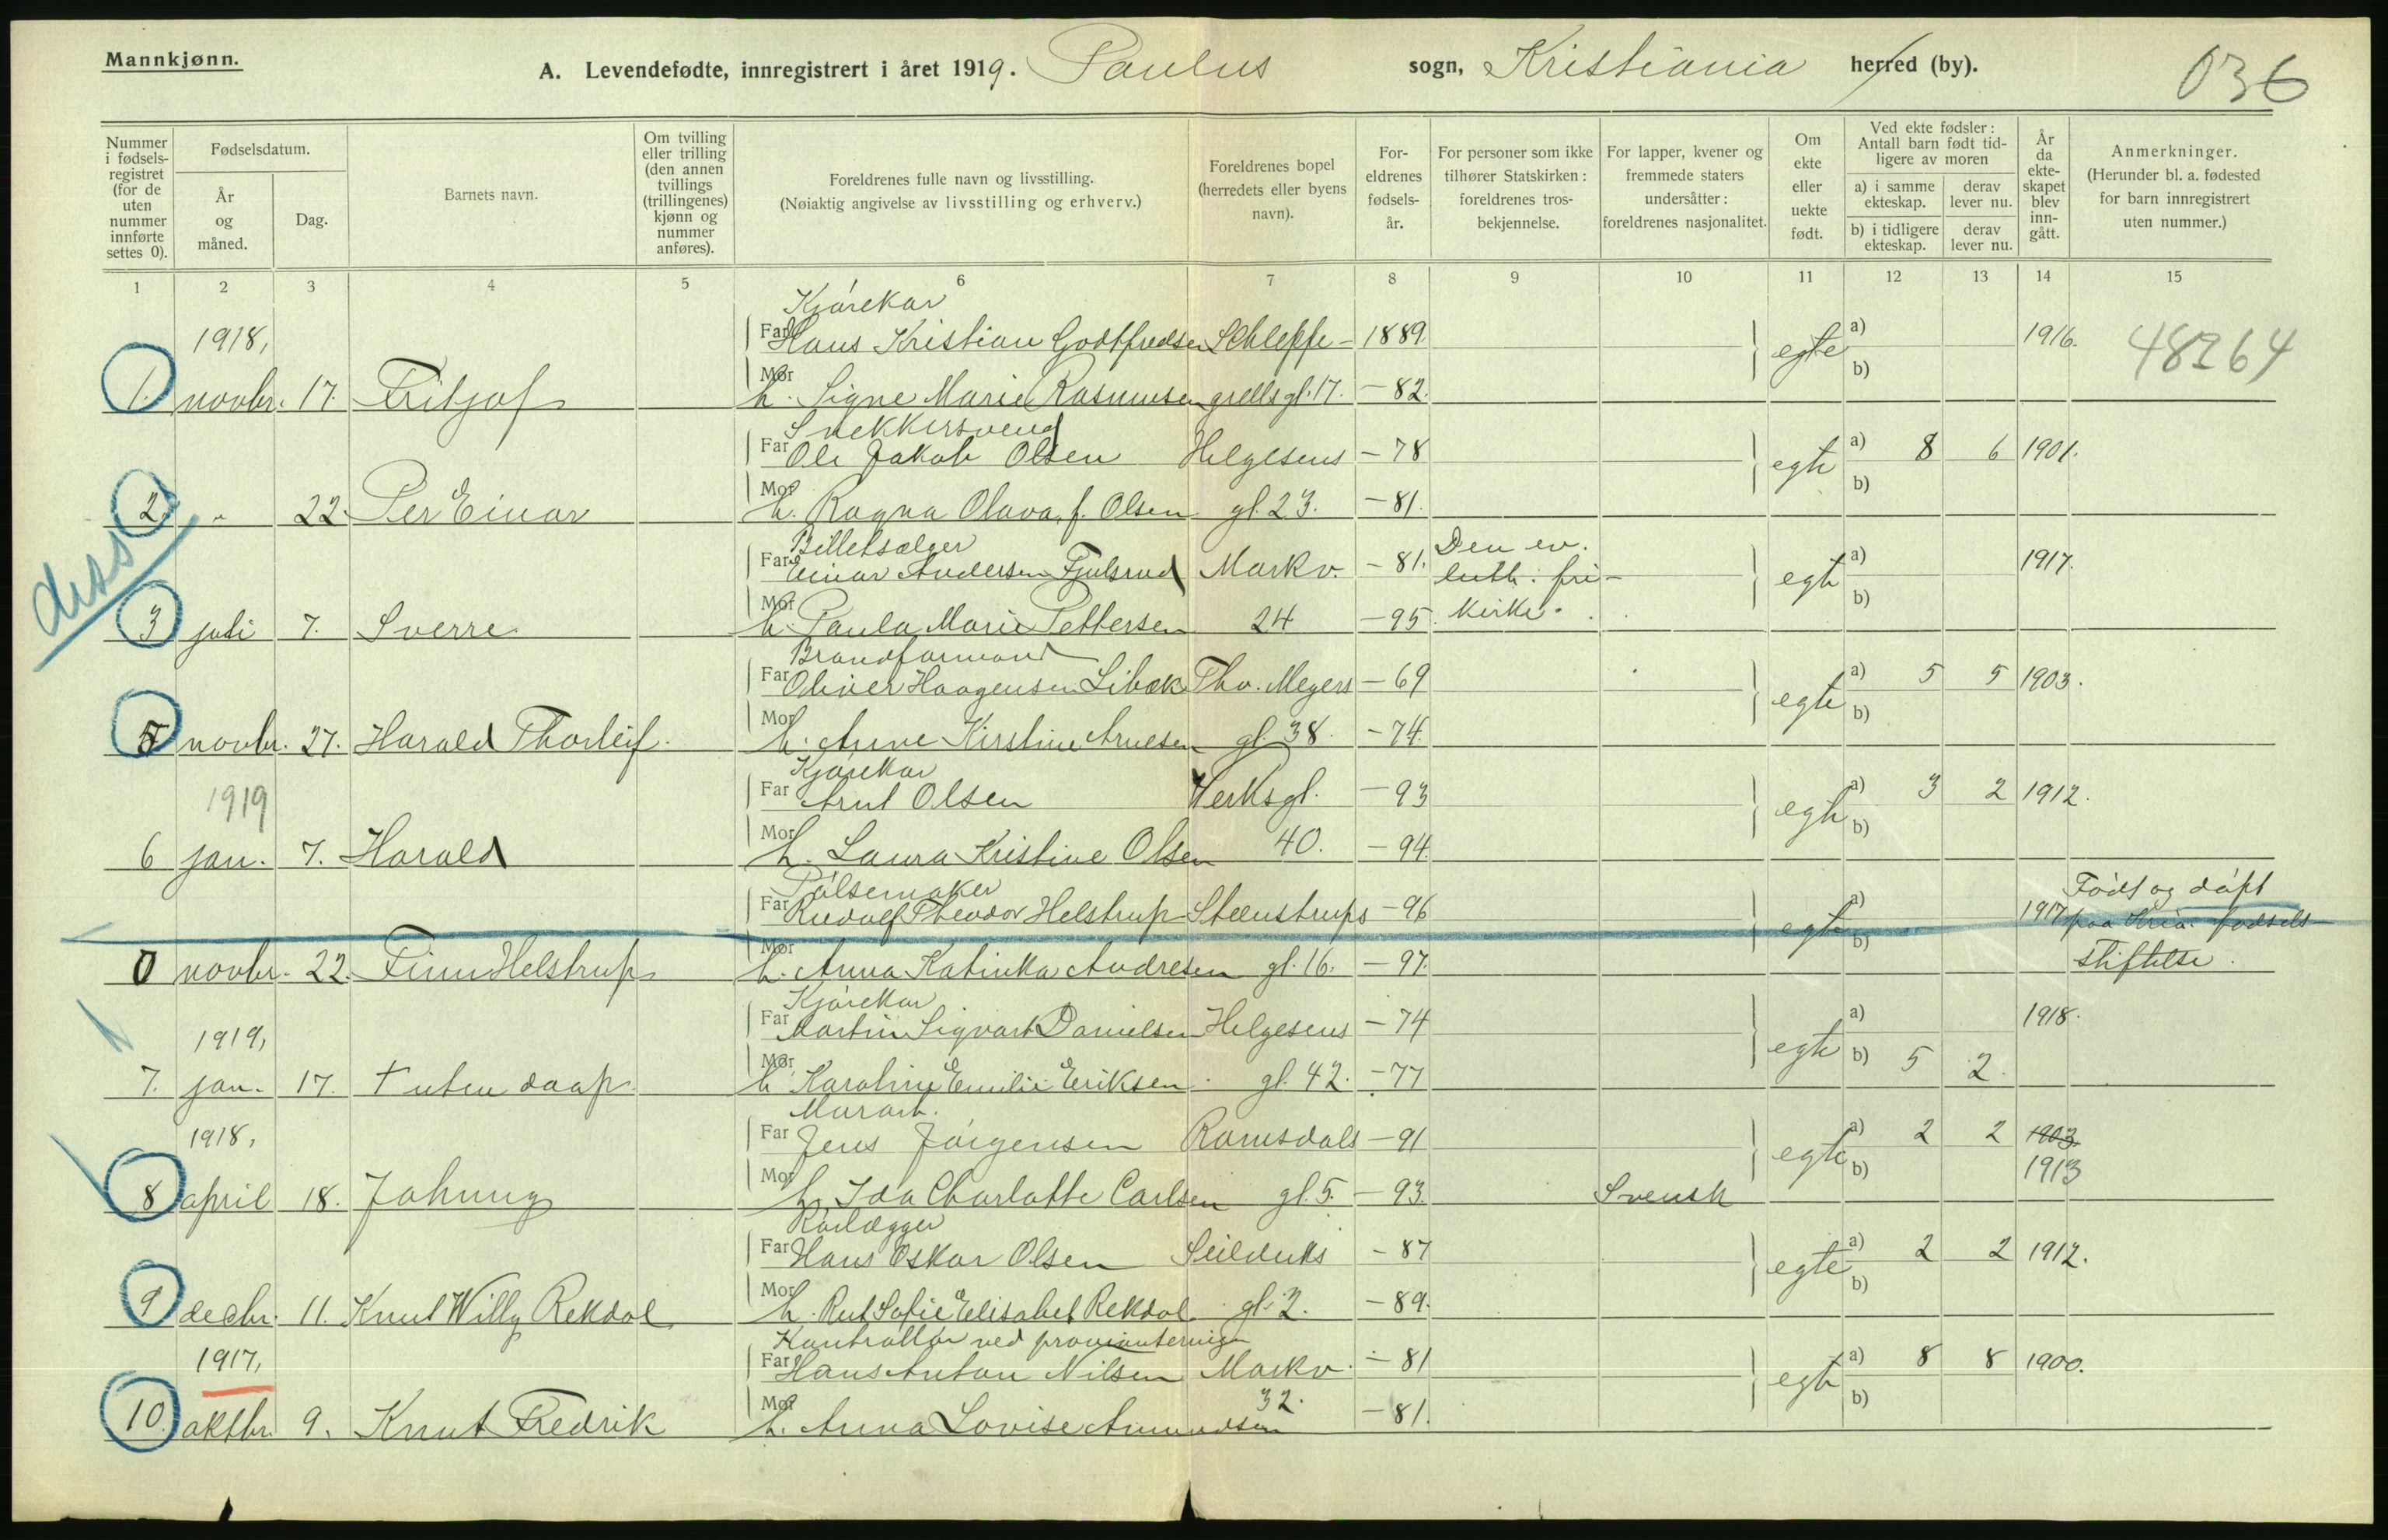 Mannkjønn.
A. Levendefødte, innregistrert i året 1919. Paulus sogn, Kristiania herred (by).
036
Nummer i fødsels-registret (for de uten nummer innførte settes 0).
Fødselsdatum.
År og måned.
Dag.
Barnets navn.
Om tvilling eller trilling (den annen tvillings (trillingenes) kjønn og nummer anføres).
Foreldrenes fulle navn og livsstilling.
(Nøiaktig angivelse av livsstilling og erhverv.)
Foreldrenes bopel (herredets eller byens navn).
For-eldrenes fødsels-år.
For personer som ikke tilhører Statskirken: foreldrenes tros-bekjennelse.
For lapper, kvener og fremmede staters undersåtter: foreldrenes nasjonalitet.
Om ekte eller uekte født.
Ved ekte fødsler: Antall barn født tid-ligere av moren
a) i samme ekteskap.
derav lever nu.
b) i tidligere ekteskap.
derav lever nu.
År da ekte-skapet blev inn-gått.
Anmerkninger.
(Herunder bl. a. fødested for barn innregistrert uten nummer.)
1 2 3 4 5 6 7 8 9 10 11 12 13 14 15
Kjørekar
1918, Far Hans Kristian Godtfredsen Schleppe- 1889. egte a) 1916. 48264
1. novbr. 17. Fritjof Mor h. Signe Marie Rasmussen grellsgt. 17. -82. b)
Snekkersvend
Far Ole Jakob Olsen Helgesens -78 egte a) 8 6 1901.
2. " 22. Per Einar Mor h. Ragna Olava, f. Olsen gt. 23. -81. b)
diss
Billetsælger
Far Einar Andersen Fjulsrud Markv. -81. Den ev. luth. fri- egte a) 1917.
3 juli 7. Sverre Mor h. Paula Marie Pettersen 24 -95. kirke. b)
Brandformand
Far Oliver Haagensen Libæk Thv. Meyers -69 egte a) 5 5 1903.
5 novbr. 27. Harald Thorleif. Mor h. Anne Kirstine Arnesen gt. 38. -74. b)
Kjørekar
1919 Far Arnt Olsen Verksgt. -93 egte a) 3 2 1912.
6 jan. 7. Harald Mor h. Laura Kristine Olsen 40. -94. b)
Pølsemaker
Far Rudolf Theodor Helstrup Steenstrups -96 egte a) 1917 Født og døpt paa Kria. fødsels
0 novbr. 22. Finn Helstrup Mor h. Anna Katinka Andresen gt. 16. -97. b) stiftelse.
Kjørekar
1919, Far Martin Sigvart Danielsen Helgesens -74 egte a) 1918.
7. jan. 17. † uten daap. Mor h. Karoline Emilie Eriksen gt. 42. -77 b) 5 2.
Murarb.
1918, Far Jens Jørgensen Romsdals -91 egte a) 2 2 1903
8 april 18. Johnny Mor h. Ida Charlotte Carlsen gt. 5. -93. Svensk b) 1913
Rørlægger
Far Hans Oskar Olsen Seilduks -87 egte a) 2 2 1912.
9 decbr. 11. Knut Willy Rekdal Mor h. Rut Sofie Elisabet Rekdal gt. 2. -89. b)
Kontrollør ved provianteringen
1917, Far Hans Anton Nilsen Markv. -81 egte a) 8 8 1900.
10. oktbr. 9. Knut Fredrik Mor h. Anna Lovise Amundsen 32. -81. b)